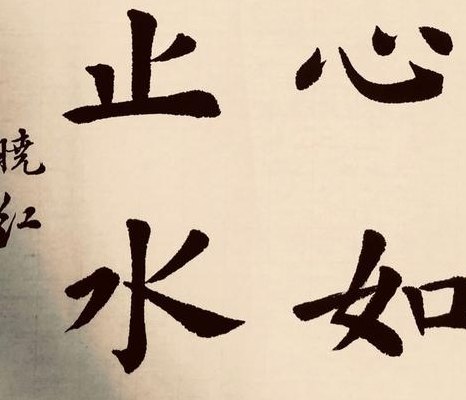 心如
止水
晓红